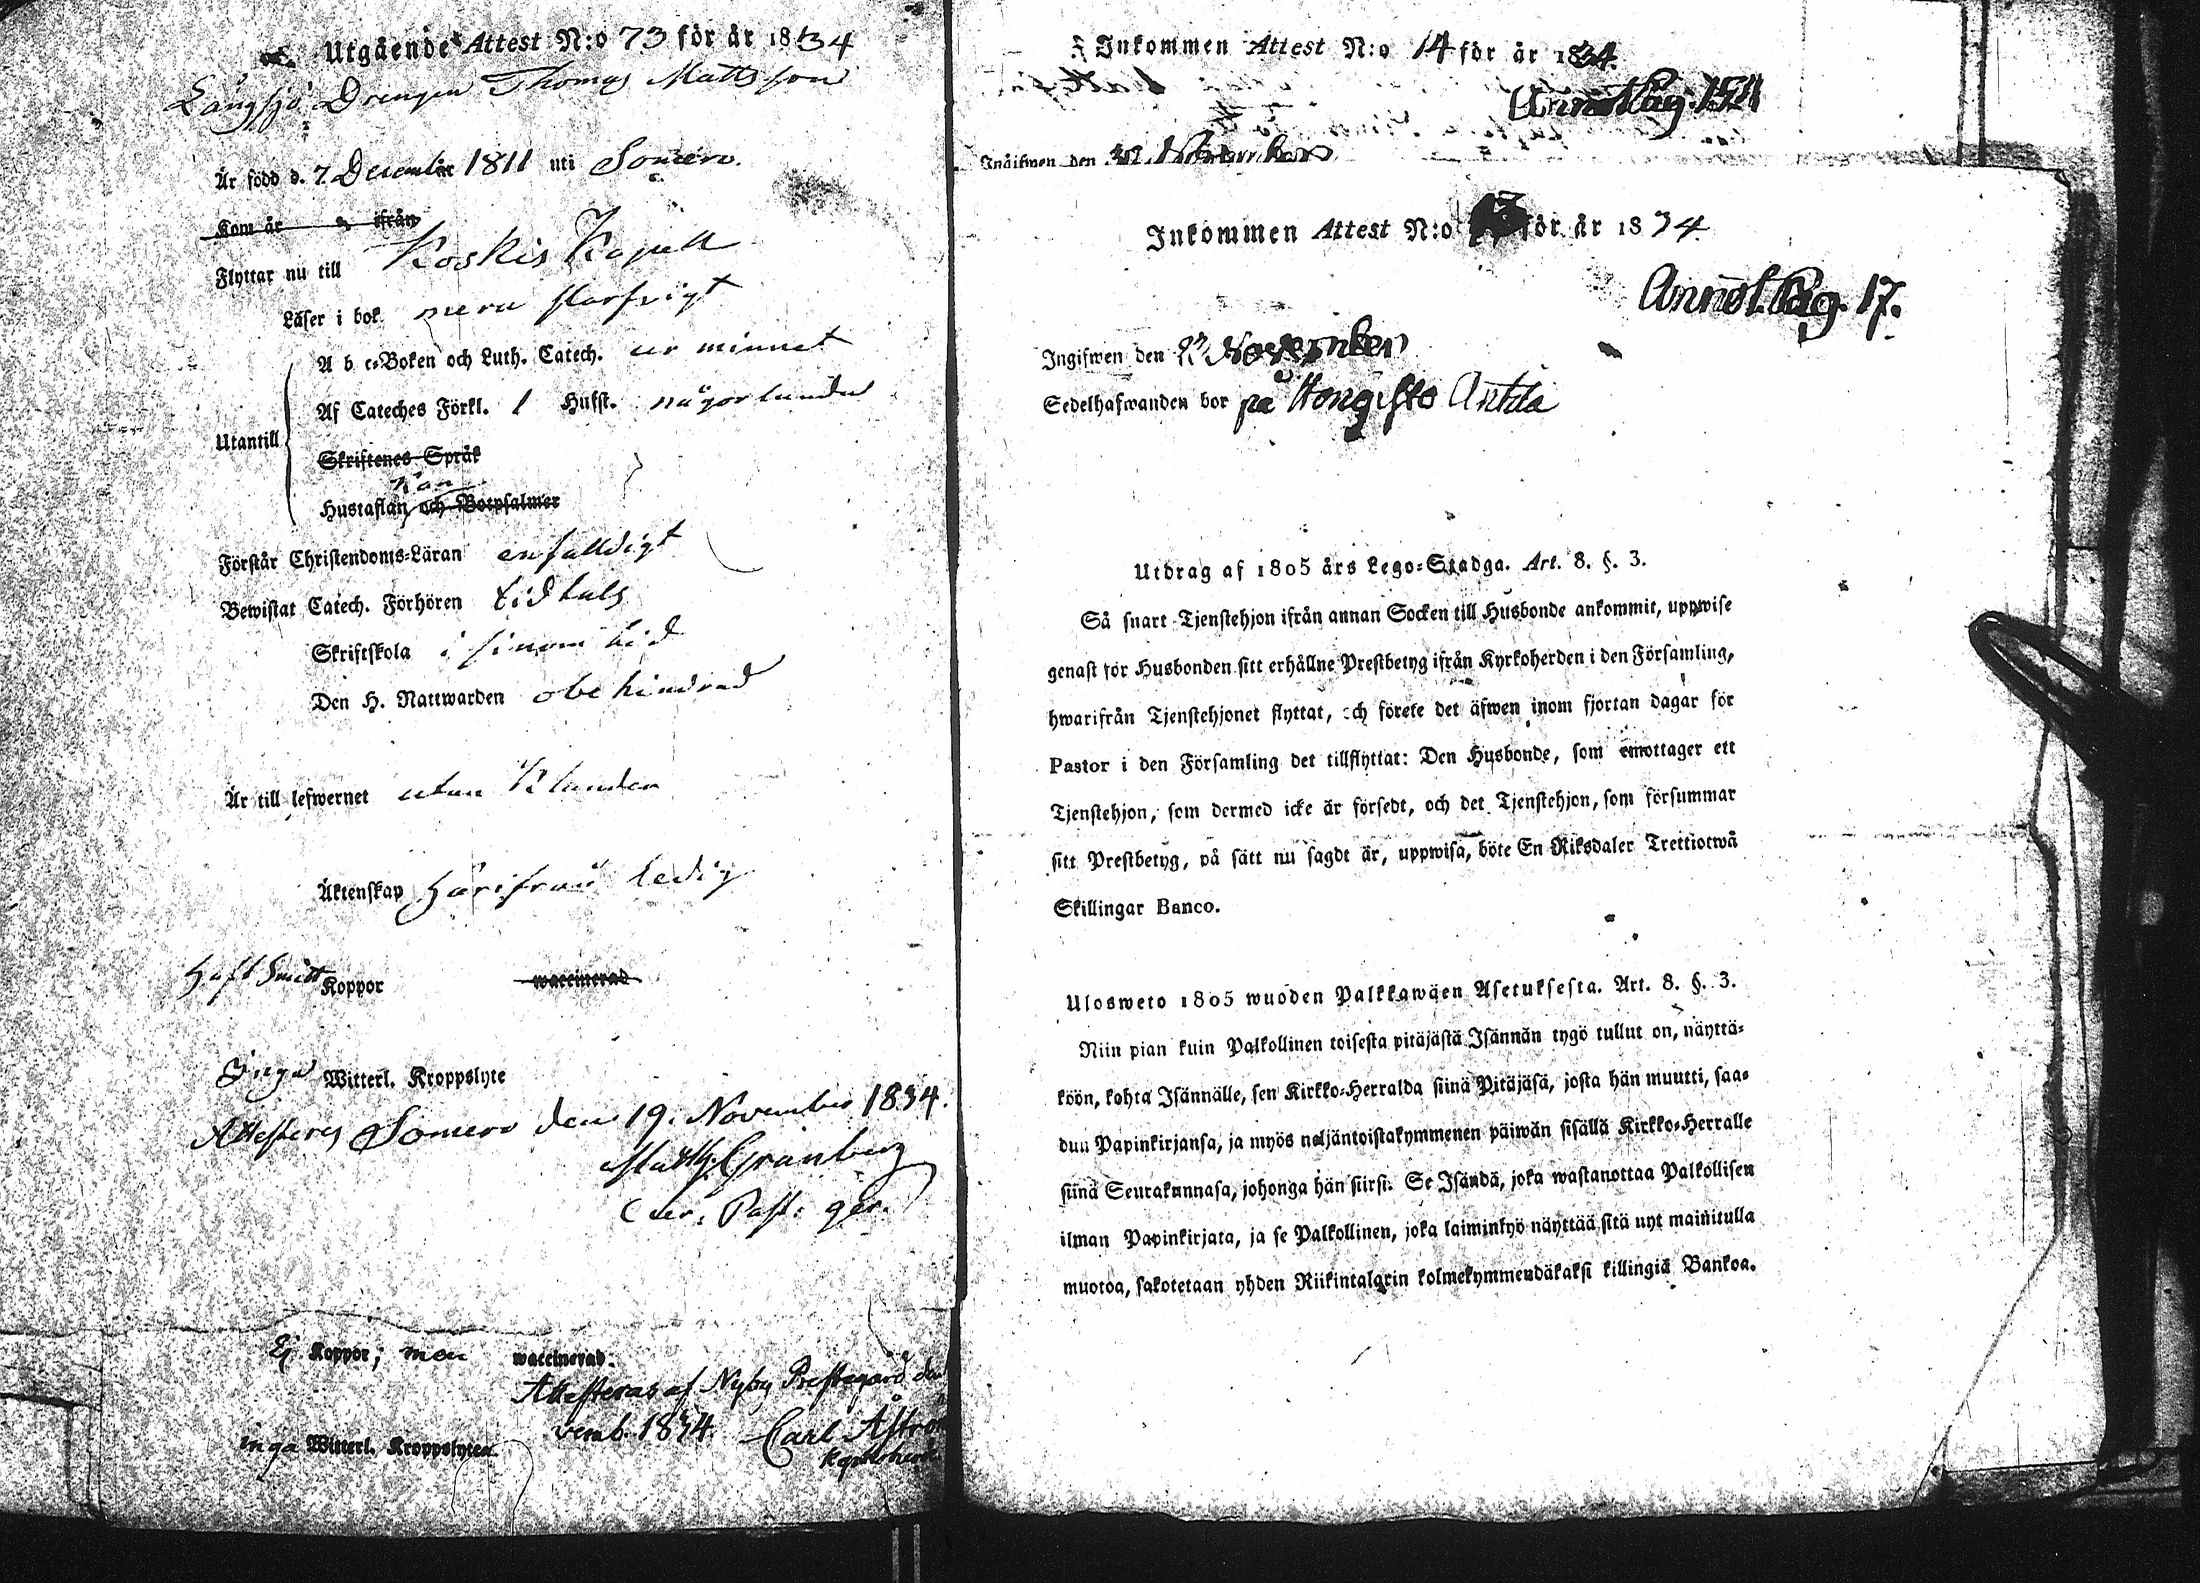 Utgående Attest N:o 73 för år 1834
Långsjö Drengen Thomas Mattsson
Är född d. 7. December 1811 uti Somero.
Kom år ifrån
Flyttar nu till Koskis Kapell
Läser i bok mera slarfvigt
A b c-Boken och Luth. Catech. ur minnet
Af Cateches Förkl. 1 Hufst. någorlunda
Utantill
Skriftenes Språk
kan
Hustaflan och Botpsalmer
Förstår Christendoms-Läran enfaldigt
Bewistat Catech. Förhören tidtals
Skriftskola i sinom tid
Den H. Nattwarden obehindrad
Är till lefwernet utan klander
Äktenskap härifrån ledig
Haft Smitt Koppor waccinerad
Inga Witterl. Kroppslyte
Attesteres Somero den 19. November 1834.
Matth. Granberg
Cur. Past. ger.
Ej Koppor; men waccinerad.
Attesteras af Nyby Prestegård den
vemb. 1834. Carl Åströ
inga Witterl. Kroppslyten
Inkommen Attest N:o 14 för år 1834.
Annot. Pag.
Ingifwen den November
Inkommen Attest N:o för år 1834.
Annot. Pag. 17.
Ingifwen den November
Sedelhafwanden bor på Hongisto Anttila
Utdrag af 1805 års Lego-Stadga. Art. 8. §. 3.
Så snart Tjenstehjon ifrån annan Socken till Husbonde ankommit, uppwise
genast för Husbonden sitt erhållne Prestbetyg ifrån Kyrkoherden i den Församling,
hwarifrån Tjenstehjonet flyttat, och förete det äfwen inom fjortan dagar för
Pastor i den Församling det tillflyttat: Den Husbonde, som emottager ett
Tjenstehjon, som dermed icke är försedt, och det Tjenstehjon, som försummar
sitt Prestbetyg, på sätt nu sagdt är, uppwisa, böte En Riksdaler Trettiotwå
Skillingar Banco.
Ulosweto 1805 wuoden Palkkawäen Asetuksesta. Art. 8. §. 3.
Niin pian kuin Palkollinen toisesta pitäjästä Isännän tygö tullut on, näyttä-
köön, kohta Isännälle, sen Kirkko-Herralda siinä Pitäjäsä, josta hän muutti, saa-
dun Papinkirjansa, ja myös neljäntoistakymmenen päiwän sisällä Kirkko-Herralle
siinä Seurakunnasa, johonga hän siirsi. Se Isändä, joka wastanottaa Palkollisen
ilman Papinkirjata, ja se Palkollinen, joka laiminlyö näyttää sitä nyt mainitulla
muotoa, sakotetaan yhden Riikintalarin kolmekymmendäkaksi killingiä Bankoa.